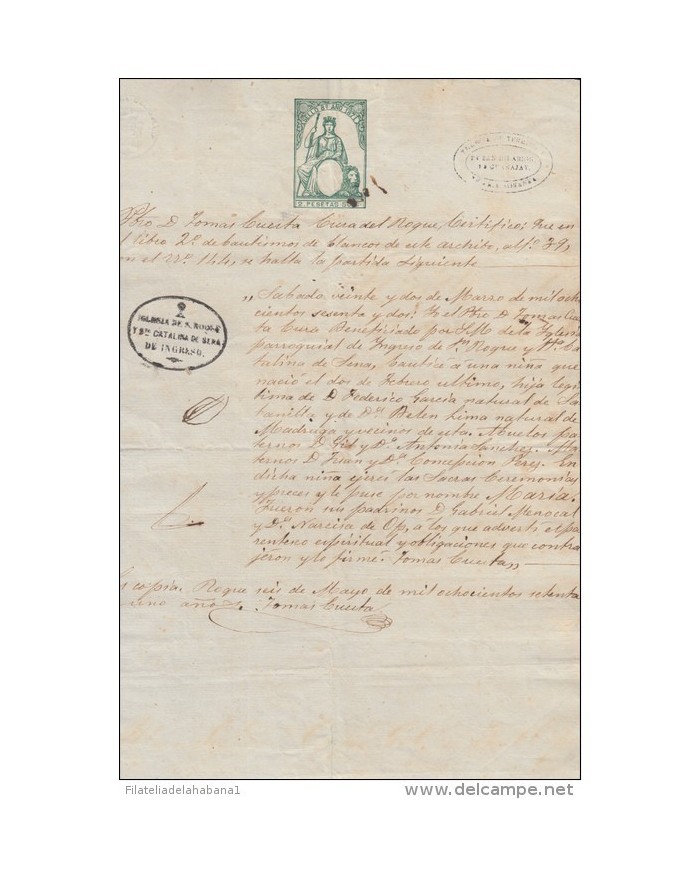 Pbro D. Tomas Cuesta Cura del Roque, Certifico: Que en
l libro 2º de bautismos de blancos de este archivo, al fº 39,
on el nº 144, se halla la partida siguiente
IGLESIA DE S. ROQUE
Y Sta CATALINA DE SENA
DE INGRESO.
"Sabado, veinte y dos de Marzo de mil ocho
cientos sesenta y dos: Yo el Pbro D. Tomas Cues
ta Cura Beneficiado por S.M. de la Yglesia
parroquial de Ingreso de Sn Roque y Sta Ca
talina de Sena, bautice á una niña que
nació el dos de Febrero ultimo, hija legi
tima de D. Federico Garcia natural de Sa
banilla y de Da Belen Lima natural de
Madruga y vecinos de esta. Abuelos pa
ternos D. Gil y Da Antonia Sanchez. Ma
ternos D. Juan y Da Concepcion Perez. En
dicha niña ejercí las Sacras Ceremonias
y preces y le puse por nombre María.
Fueron sus padrinos D. Gabriel Menocal
y Da Narcisa de Op, a los que advertí el pa
rentesco espiritual y obligaciones que contra
jeron y lo firmé. Tomas Cuesta"
s copia. Roque seis de Mayo de mil ochocientos setenta
uno años. Tomas Cuesta
Filateliadelahabana1
www.delcampe.net